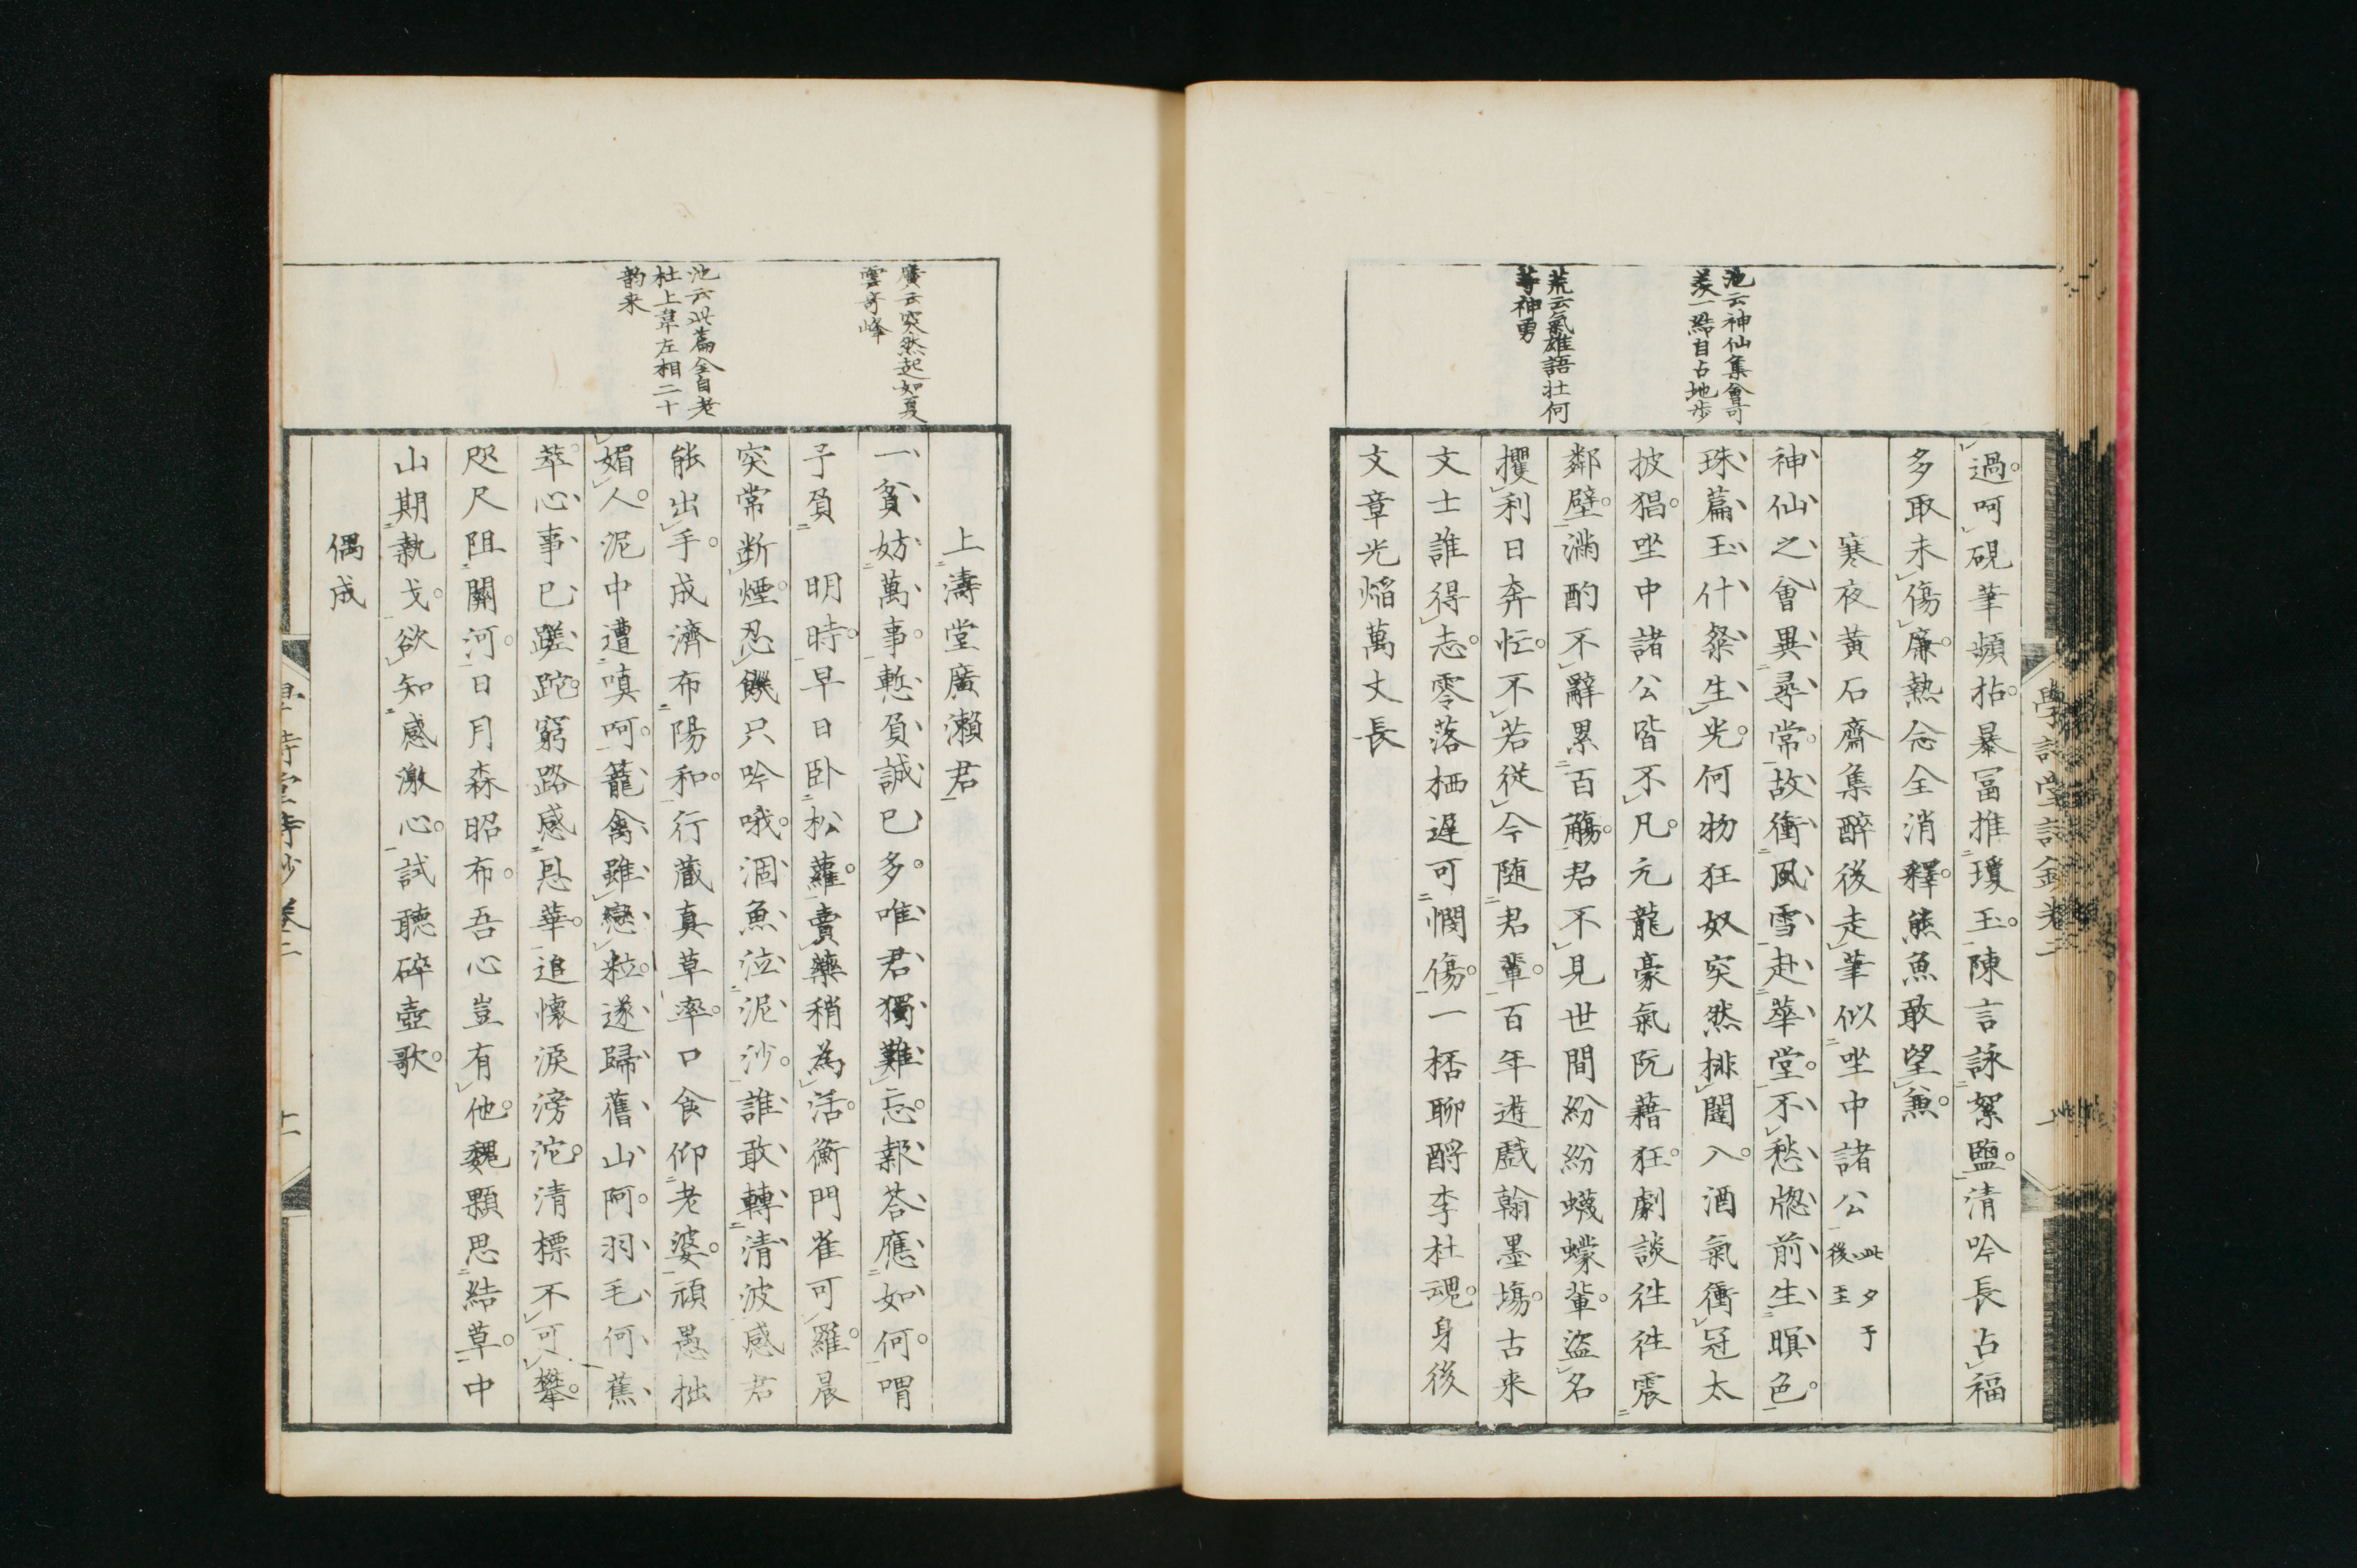 過呵硯筆頻拈暴冨推瓊玉陳言詠絮鹽清吟長占福
多取未傷廉熱念全消釋熊魚敢望兼
寒夜黃石齋集醉後走筆似坐中諸公此夕于後至
神仙之會異尋常故衝風雪赴華堂不愁牕前生暝色
珠篇玉什粲生光何物狂奴突然排闥入酒氣衝冠太
披猖坐中諸公皆不凡元龍豪氣阮藉狂劇談徃徃震
鄰壁滿酌不辭累百觴君不見世間紛紛蠛蠓輩盜名
攫利日奔忙不若從今随君輩百年遊戲翰墨塲古来
文士誰得志零落栖遲可憫傷一桮聊酹李杜魂身後
文章光熖萬丈長
池云神仙集會可
羨一結自占地步
荒云氣雄語壯何
等神勇
學詩堂詩鈔卷二
上濤堂廣瀨君
一貧妨萬事慙負誠已多唯君獨難忘報荅應如何喟
予負明時早日卧松蘿賣藥稍為活衡門雀可羅晨
突常断煙忍饑只吟哦涸魚泣泥沙誰敢轉清波感君
能出手成濟布陽和行藏真草率口食仰老婆頑愚拙
媚人泥中遭嗔呵籠禽雖戀粒遂歸舊山阿羽毛何蕉
萃心事已蹉跎窮路感恩華追懷淚滂沱清標不可攀
咫尺阻關河日月森昭布吾心豈有他魏顆思結草中
山期執戈欲知感激心試聽碎壺歌
偶成
廣云突然起如夏
雲奇峰
池云此篇全自老
杜上韋左相二十
韵来
學詩堂詩鈔 卷二